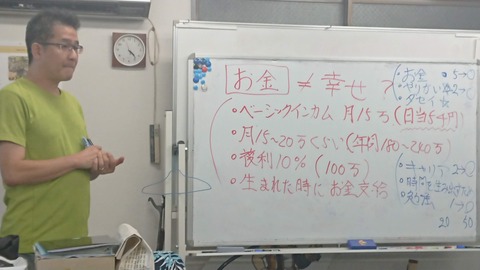 お金 ≠ 幸せ ?
・ベーシックインカム 月15万(日当5千円)
・月15~20万くらい(年肉180~240万)
・複利10%(100万)
・生まれた時にお金支給
・お金 5→0
・やりがい
・キャリア 2→0
・時間を
1→0
20 30